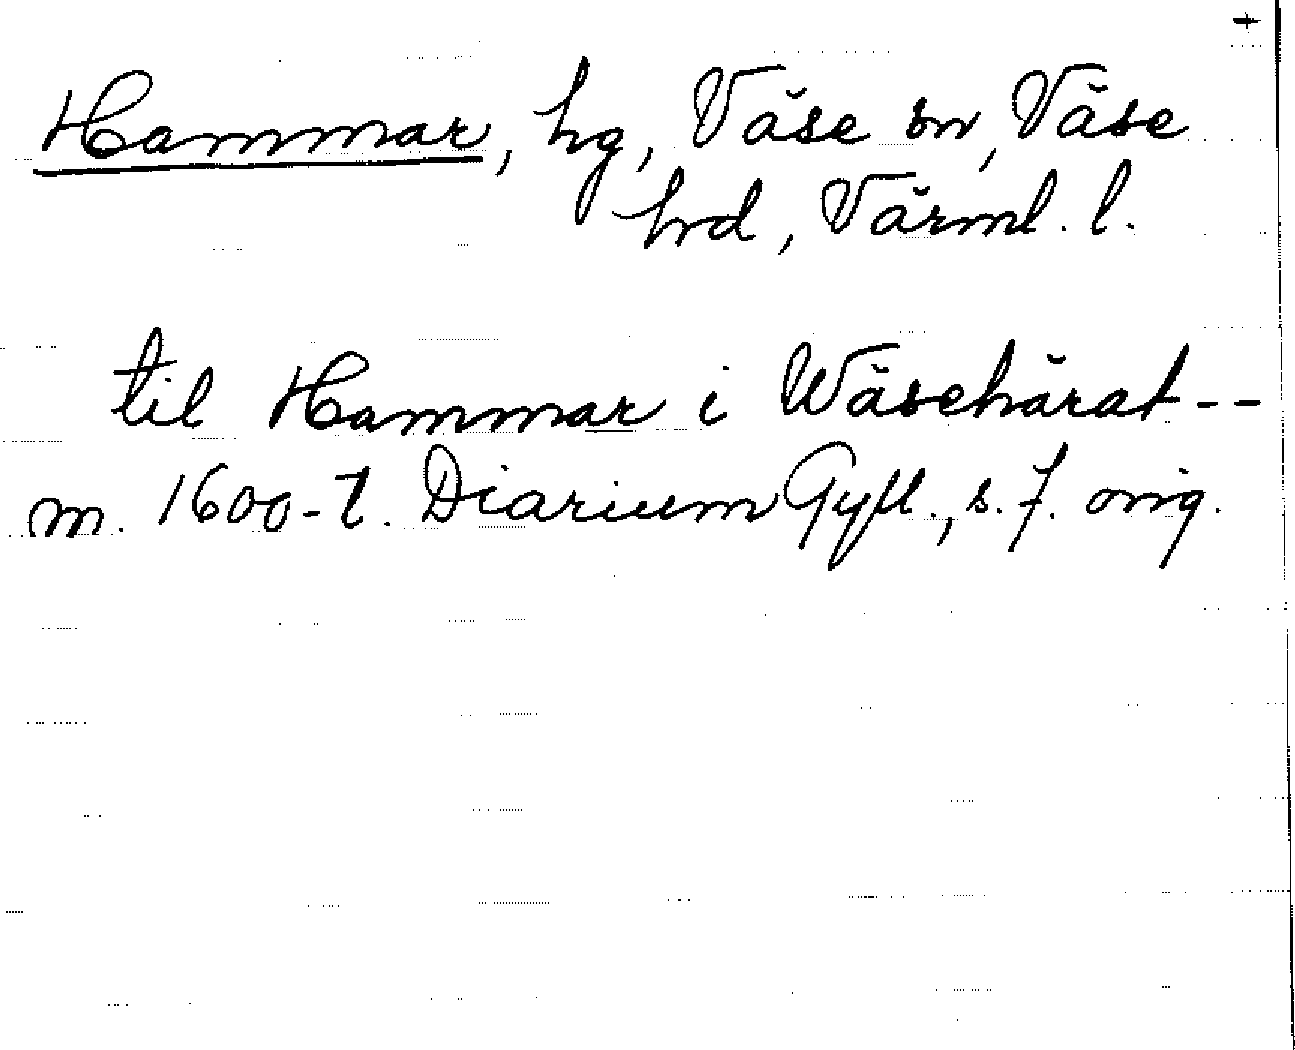 +
Hammar, hg, Väse sn, Väse
hrd, Värml. l.
til Hammar i Wäsehärat--
m. 1600-t. Diarium Gyll., s. 7. orig.